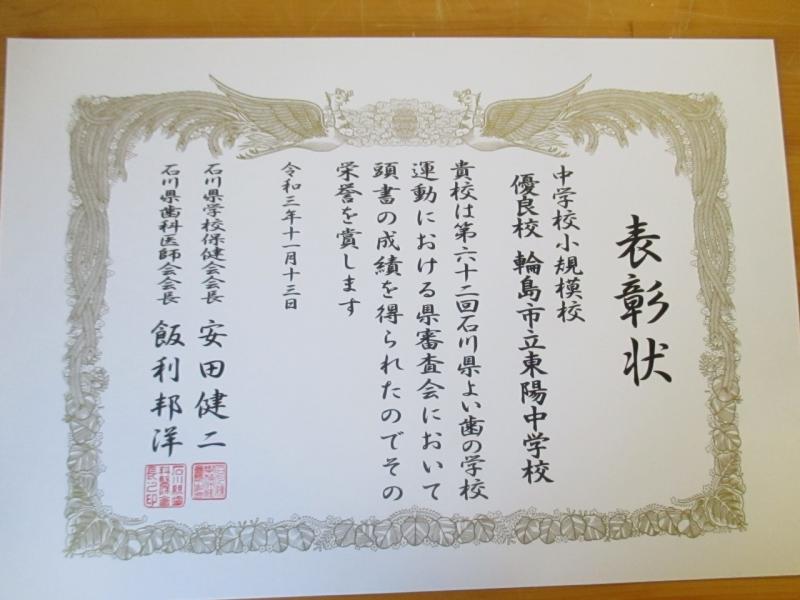 表彰状
中学校小規模校
優良校 輪島市立東陽中学校
貴校は第六十二回石川県よい歯の学校
運動における県審査会において
頭書の成績を得られたのでその
栄誉を賞します
令和三年十一月十三日
石川県学校保健会会長 安田健二
石川県歯科医師会会長 飯利邦洋